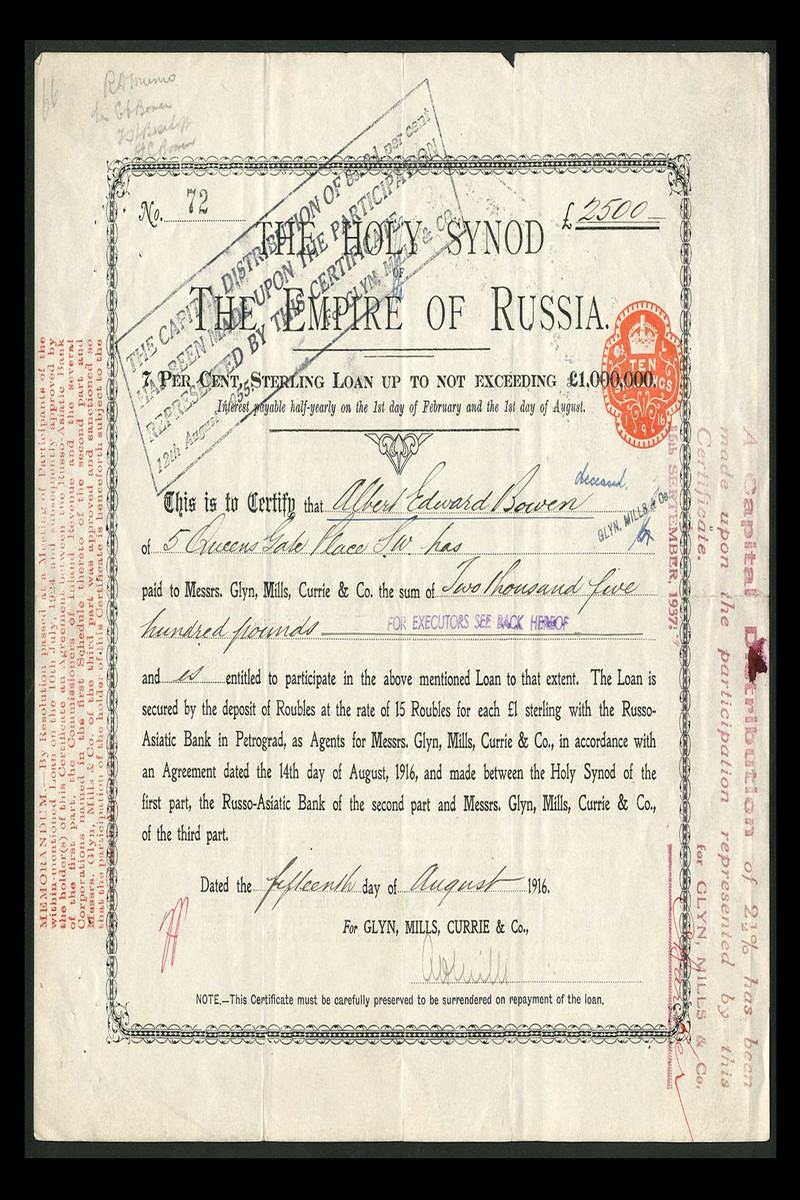 No. 72
£2500-
THE HOLY SYNOD
OF
THE EMPIRE OF RUSSIA.
7 PER CENT. STERLING LOAN UP TO NOT EXCEEDING £1,000,000.
Interest payable half-yearly on the 1st day of February and the 1st day of August.
TEN
THE CAPITAL DISTRIBUTION OF per cent
HAS BEEN MADE UPON THE PARTICIPATION
REPRESENTED BY THIS CERTIFICATE.
12th August 1955 for GLYN, MILLS & CO.
deceased.
This is to Certify that Albert Edward Bowen
GLYN, MILLS & Co
of 5 Queens Gate Place SW. has
paid to Messrs. Glyn, Mills, Currie & Co. the sum of Two thousand five
hundred pounds
FOR EXECUTORS SEE BACK HEREOF
and is entitled to participate in the above mentioned Loan to that extent. The Loan is
secured by the deposit of Roubles at the rate of 15 Roubles for each £1 sterling with the Russo-
Asiatic Bank in Petrograd, as Agents for Messrs. Glyn, Mills, Currie & Co., in accordance with
an Agreement dated the 14th day of August, 1916, and made between the Holy Synod of the
first part, the Russo-Asiatic Bank of the second part and Messrs. Glyn, Mills, Currie & Co.,
of the third part.
Dated the fifteenth day of August 1916.
For GLYN, MILLS, CURRIE & Co.,
NOTE.—This Certificate must be carefully preserved to be surrendered on repayment of the loan.
MEMORANDUM.—By Resolution passed at a Meeting of Participants of the
within-mentioned Loan on the 10th July, 1924 and subsequently approved by
the holder(s) of this Certificate an Agreement between the Russo-Asiatic Bank
of the first part, the Commissioners of Inland Revenue and the several
Corporations named in the first Schedule thereto of the second part and
Messrs. Glyn, Mills & Co. of the third part was approved and sanctioned so
that the participation of the holder of this Certificate is henceforth subject to the
A Capital Distribution of 2½% has been
made upon the participation represented by this
Certificate.
for GLYN, MILLS & Co,
15th SEPTEMBER, 1937.